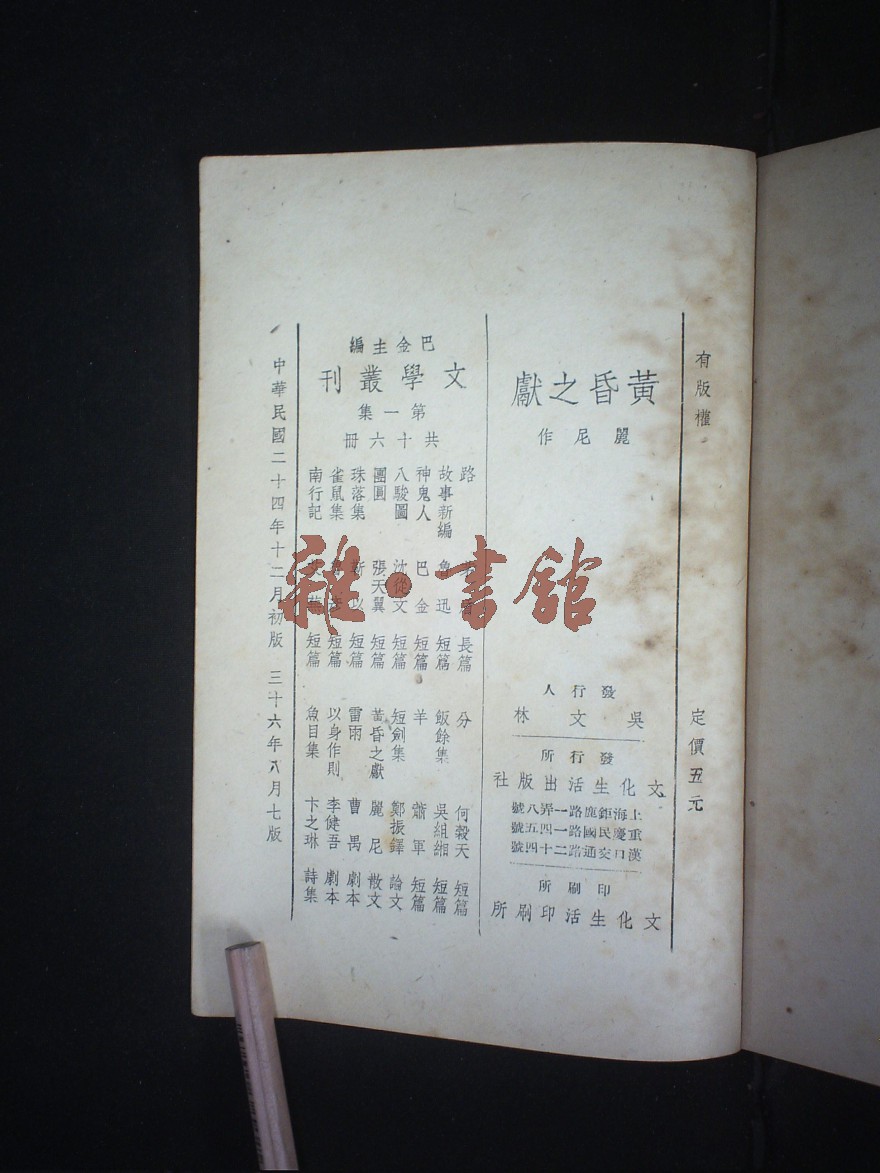 有版權
定價五元
黃昏之獻
麗尼作
發行人
吳文林
發行所
文化生活出版社
上海鉅鹿路一弄八號
重慶民國路一四五號
漢口交通路二十四號
印刷所
文化生活印刷所
巴金主編
文學叢刊
第一集
共十六冊
路 長篇
故事新編 魯迅 短篇
神鬼人 巴金 短篇
八駿圖 沈從文 短篇
團圓 張天翼 短篇
珠落集 以 短篇
雀鼠集 短篇
南行記 短篇
分 何穀天 短篇
飯餘集 吳組緗 短篇
羊 蕭軍 短篇
短劍集 鄭振鐸 論文
黃昏之獻 麗尼 散文
雷雨 曹禺 劇本
以身作則 李健吾 劇本
魚目集 卞之琳 詩集
中華民國二十四年十二月初版 三十六年八月七版
雜·書館